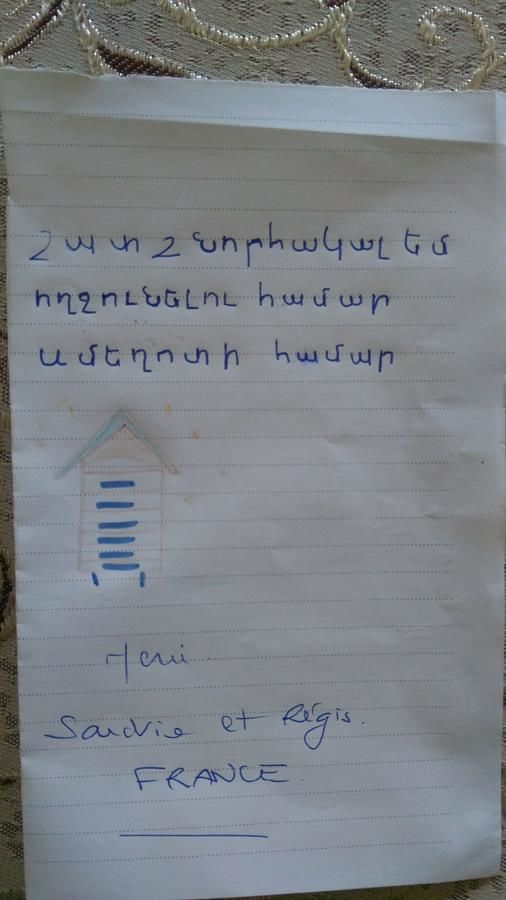 Շատ Շնորհակալ եմ
ողջունելու համար
Ամեղոտի համար
Merci
et Régis.
FRANCE